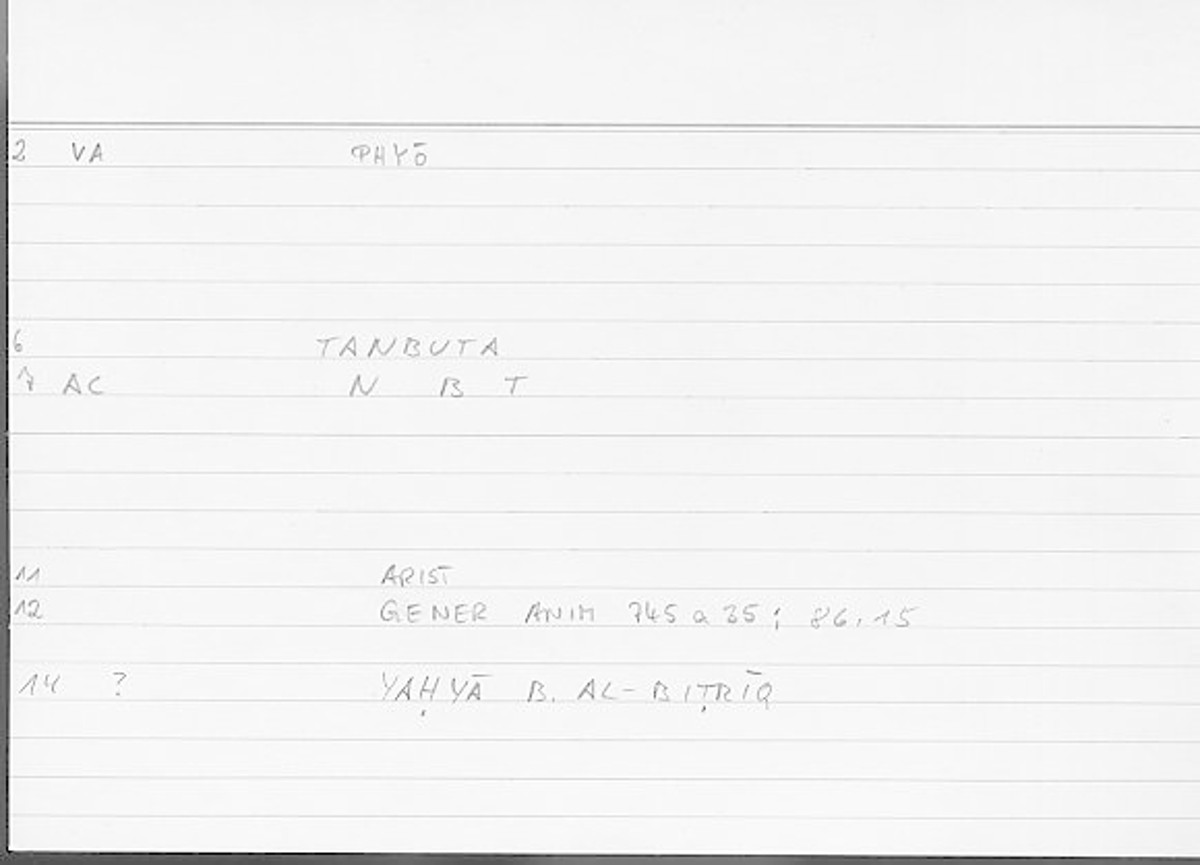 2 VA PHYŌ
6 TANBUTA
7 AC N B T
11 ARIST
12 GENER ANIM 745 a 35; 86,15
14 ? YAḤYĀ B. AL-BIṬRĪQ